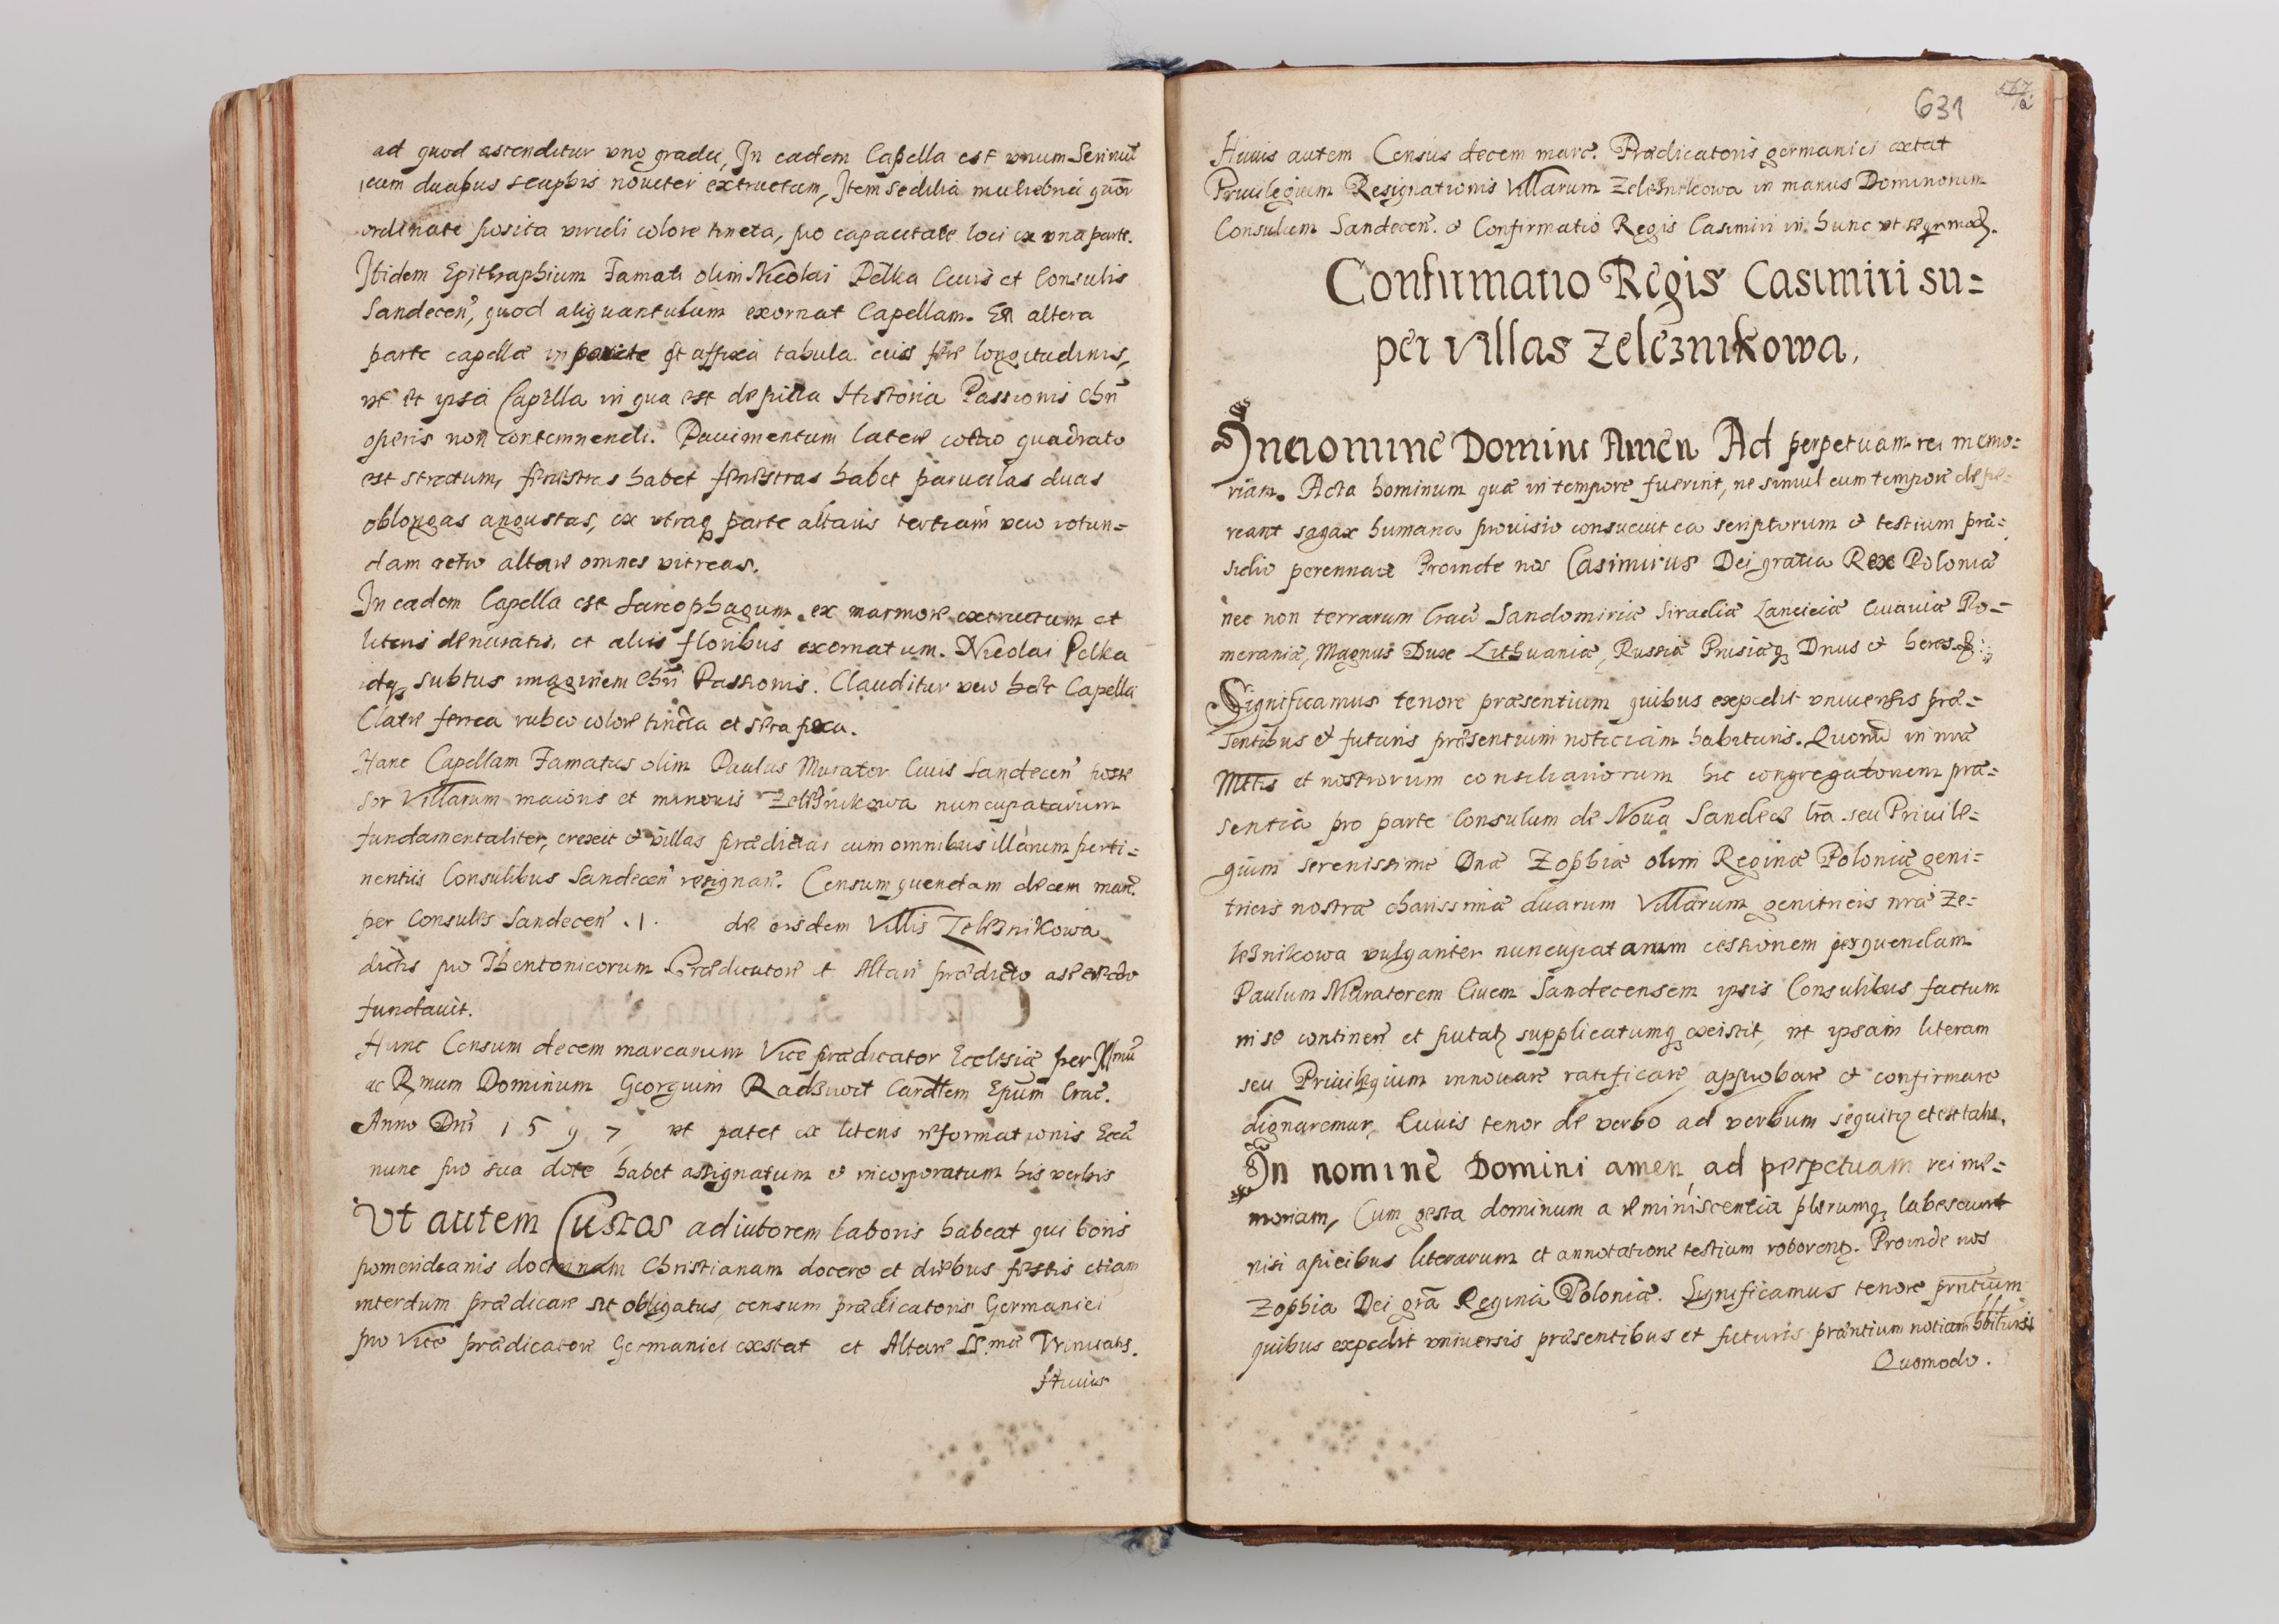 ad quod ascenditur uno gradu, In eadem Capella est unum Serinnū
cum duabus scaphis noviter extructum, Item sedilia muliebria quōr
ordinate posita viridi colore tincta, pro capacitate loci ex una parte.
Ibidem Epithaphium Famati olim Nicolai Pelka Civis et Consulis
Sandecen̄, quod aliquantulum exornat Capellam. Ex altera
parte capellæ in pariete est affixa tabula eius fere longitudinis,
ut et ipsa Capella in qua est depicta Historia Passionis Chrī
operis non contemnendi. Pavimentum latere cocto quadrato
est stratum, fenestras habet fenestras habet parvulas duas
oblongas angustas, ex utraq₃ parte altaris tertiam vero rotun=
dam retro altare omnes vitreas.
In eadem Capella est Sarcophagum ex marmore extructum et
literis deauratis, et aliis floribus exornatum. Nicolai Pelka
idq₃ subtus imaginem Chrī Passionis. Clauditur vero hæc Capella
Clatre ferrea rubeo colore tincta et sera fixa.
Hanc Capellam Famatus olim Paulus Murator Civis Sandecen̄ posse
sor Villarum maioris et minoris Zelesnikowa nuncupatarum
fundamentaliter, erexit & villas prædictas cum omnibus illarum perti=
nentiis Consulibus Sandecen̄ resignavit. Censum quendam decem marc̄.
per Consules Sandecen̄ . 1 . de eisdem Villis Zelesnikowa
dictis pro Thentonicorum Prædicatore et Altari prædicto
fundavit.
Hunc Censum decem marcarum Vice prædicator Ecclesiæ per Illmū
ac Rmum Dominum Georgium Radziwil Cardlem Epūm Crac̄.
Anno Dnī 1597, ut patet ex literis reformationis Eccæ
nunc pro sua dote habet assignatum & incorporatum his verbis
Ut autem Custos adiutorem laboris habeat qui horis
pomeridianis doctrinam Christianam docere et diebus festis etiam
interdum prædicare sit obligatus, censum prædicatoris Germanici
pro Vice prædicatore Germanici exstat et Altare SS.mæ Trinitatis.
Huius
631
Huius autem Census decem marc̄. Prædicatoris germanici extat
Privilegium Resignationis Villarum Zelesnikowa in manus Dominorum
Consulum Sandecen̄. & Confirmatio Regis Casimiri in hunc ut seqr mod₃.
Confirmatio Regis Casimiri su=
per Villas Zelesnikowa.
In nomine Domini Amen Ad perpetuam rei memo=
riam. Acta hominum quæ in tempore fuerint, ne simul cum tempore depe=
reant sagax humana provisio consuevit ea scriptorum & testium præ=
sidio perennare Proinde nos Casimirus Dei gratia Rex Poloniæ
nec non terrarum Crac̄ Sandomiriæ Siradiæ Lanciciæ Cuiaviæ Po=
meraniæ, Magnus Dux Lithuaniæ, Russiæ Prusiæq₃ Dnus & heres
Significamus tenore præsentium quibus expedit universis præ=
sentibus & futuris præsentium noticiam habituris. Quomō in nrā
Mttis et nostrorum consiliariorum hic congregatorum præ=
sentia pro parte Consulum de Nova Sandecz lrā seu Privile=
gium serenissimæ Dnæ Zophiæ olim Reginæ Poloniæ geni=
tricis nostræ charissimæ duarum Villarum genitricis nræ Ze=
lesnikowa vulgariter nuncupatarum cessionem per quendam
Paulum Muratorem Civem Sandecensem ipsis Consulibus factum
in se continen̄ et supplicatumq₃ exstitit, ut ipsam literam
seu Privilegium innovare ratificare, approbare & confirmare
dignaremur, Cuius tenor de verbo ad verbum sequit₃ et est talis.
In nomine Domini amen, ad perpetuam rei me=
moriam, Cum gesta dominum a reminiscentia plerumq₃ labescunt
nisi apicibus literarum et annotatione testium roborent₃. Proinde nos
Zophia Dei grā Regina Poloniæ. Significamus tenore prntium
quibus expedit universis præsentibus et futuris præntium notiam hbituris
Quomodo.